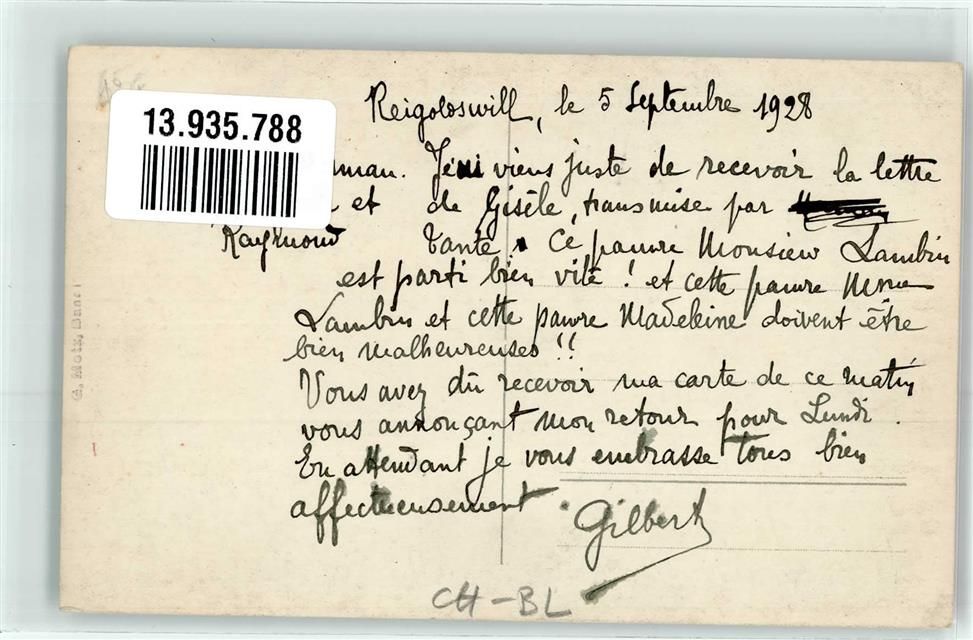 13.935.788
Reigoldswill, le 5 Septembre 1928
man. Je viens juste de recevoir la lettre
et de Gisèle, transmise par
Raymond Tante. Ce pauvre Monsieur Lambin
est parti bien vite ! et cette pauvre Mme
Lambin et cette pauvre Madeleine doivent être
bien malheureuses !!
Vous avez dû recevoir ma carte de ce matin
vous annonçant mon retour pour Lundi.
En attendant je vous embrasse tous bien
affectueusement
Gilbert
CH-BL
G. Metz, Basel